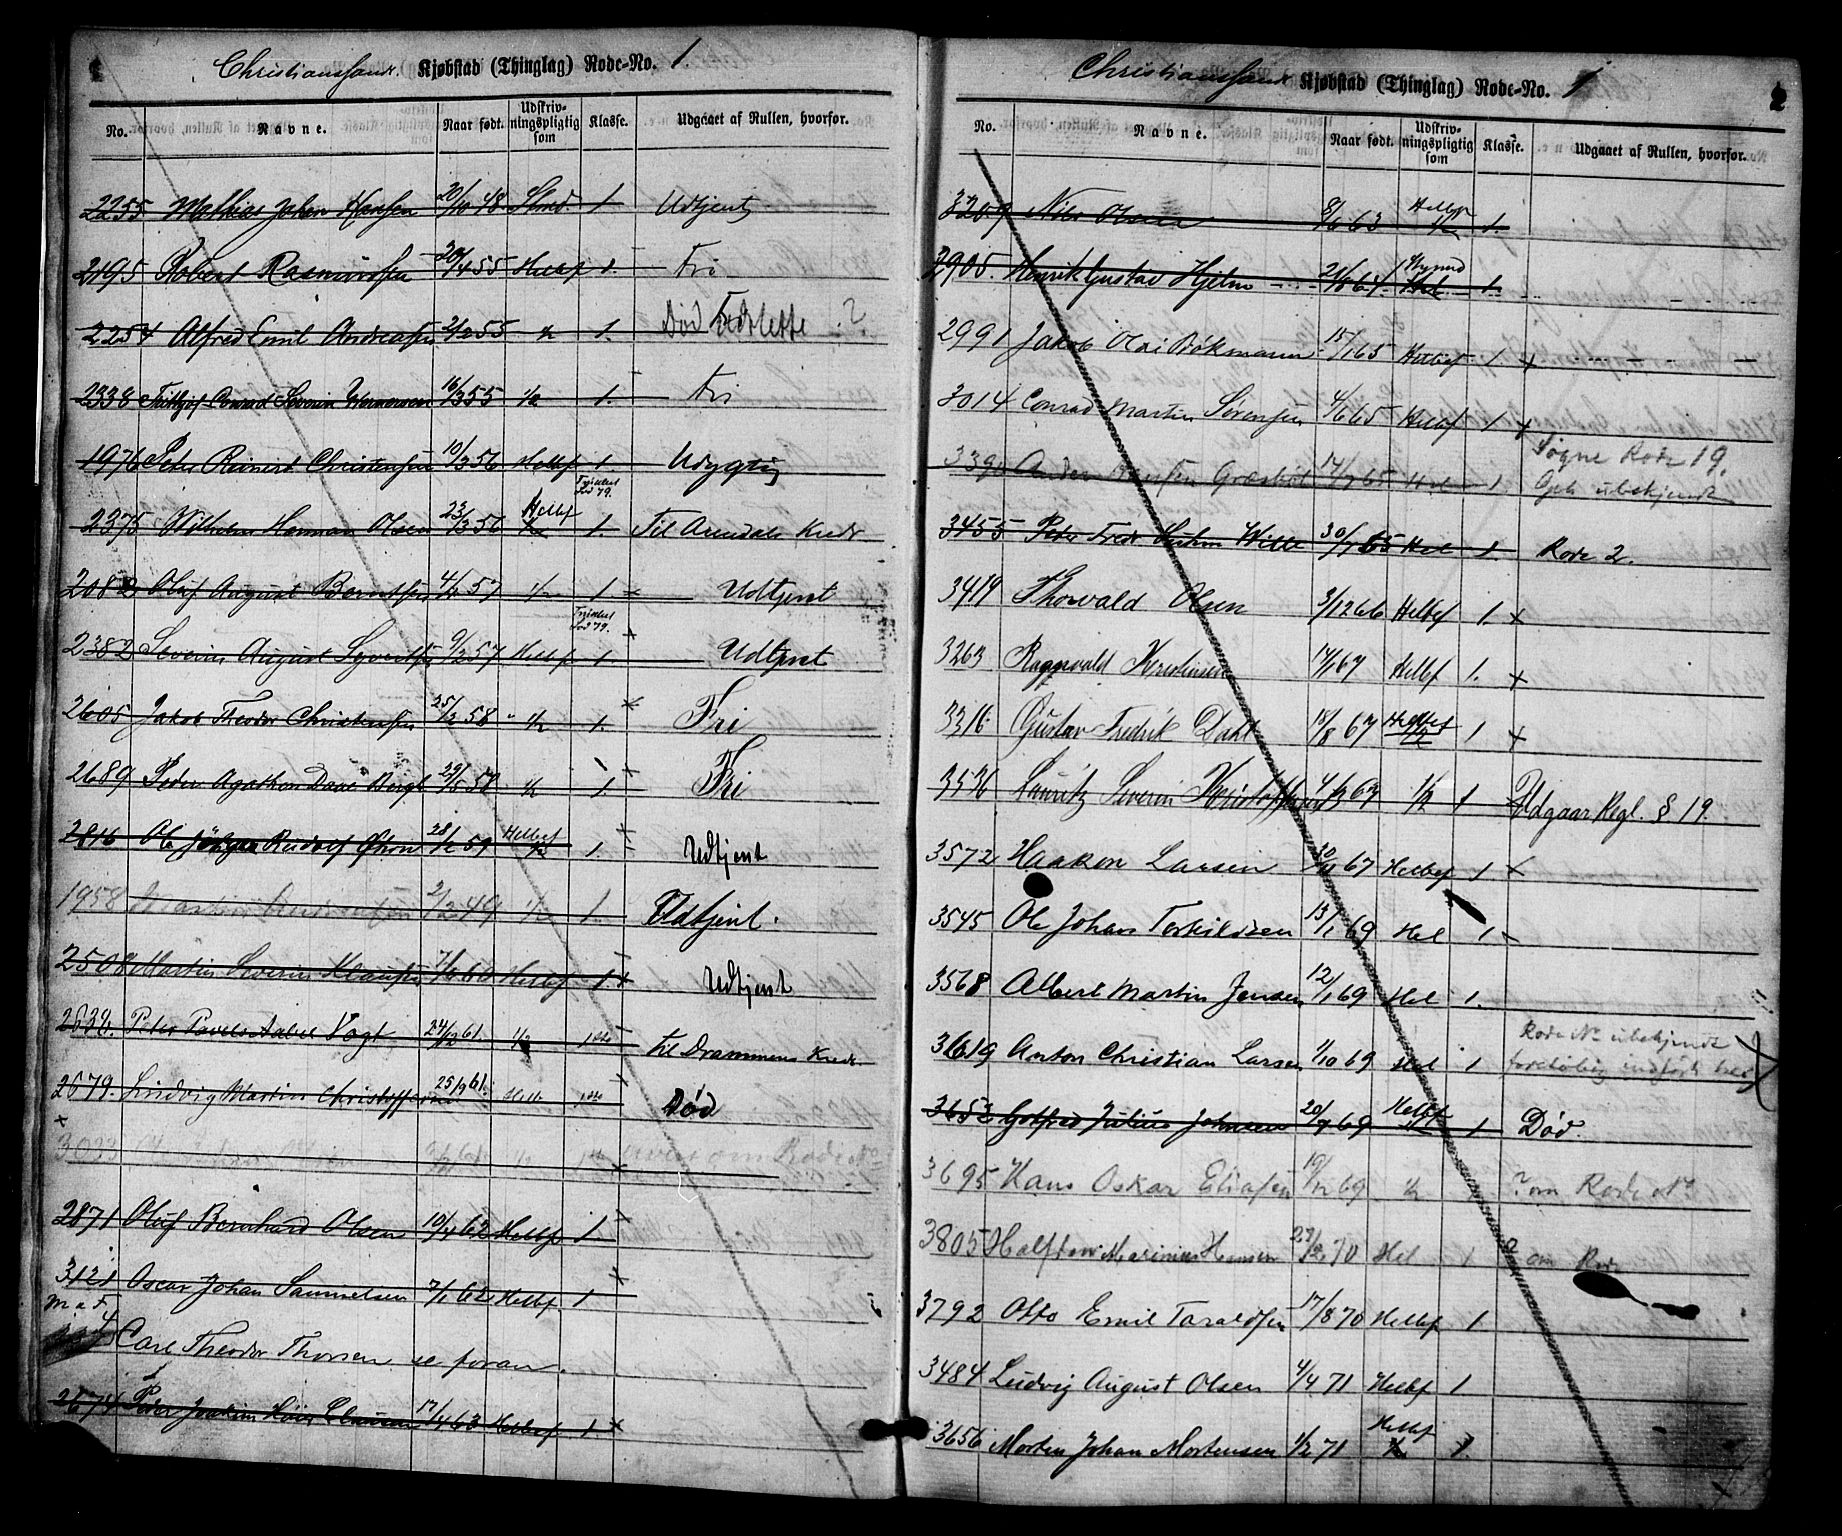 1
Christianssand. Kjøbstad (Thinglag) Rode-No. 1.
No. Navne. Naar født. Udskriv-ningspligtig som Klasse. Udgaaet af Rullen, hvorfor.
2255 Mathias Johan Hansen 20/10 48 1 Udtjent
2195 Robert Rasmussen 55 Helbf 1. Fri
2254 Alfred Emil Andreasen 2/2 55 1/2 1. Død ?
2338 Fridthjof Conrad Severin Wernersen 16/3 55 1/2 1. Fri
1976 Peder Reinert Christensen 10/3 56 Helbf 1 Udygtig
2375 Vilhelm Herman Olsen 23/3 56 Helbf 1. Til Arendals Kreds
2082 Oluf August Berntsen 57 1/2 1 Udtjent
2382 Severin August Syvertsen 9/2 57 Helbf 1. Udtjent
2605 Jakob Theodor Christensen 25/2 58 1/2 1. Fri
2689 Peder Agathon Daae Bergh 29/5 58 1/2 1. Fri
2816 Ole Jørgen Rudolf 28/2 59 Helbf 1. Udtjent
1958 Andreasen 2/2 49 1/2 1. Udtjent.
2508 Martin Severin Klausen 60 Helbf 1 + Udtjent
Peter Povels Aabel Vogt 24/12 61. 1/2 1ste til Drammens Kreds.
2679. Lindvig Martin Christoffersen 25/9 61. 1ste Død
x
3033
2871 Oluf Bernhard Olsen 10/4 62 Helbf 1.
3121 Oscar Johan Samuelsen 7/1 62 Helbf 1
Carl Theodor Thorsen se foran.
2674 Peder Joakim Høier Clausen 17/4 63 Helbf 1 x
2
Christianssand Kjøbstad (Thinglag) Rode-No. 1
No. Navne. Naar født. Udskriv-ningspligtig som Klasse. Udgaaet af Rullen, hvorfor.
3209 Nils Olsen 8/6 63 Helbf 1.
2905. Henrik Gustav Hjelm 64. 1.
2991 Jakob Olai Bökmann 15/1 65 Helbef 1 x
3014 Conrad Martin Sörensen 4/6 65 Helbf 1 x
Anders 14/7 65 Hel 1 Søgne Rode 19.
ubekjendt
3455 Peder Fredr. Suhm Wille 30/7 65 Hel 1. Rode 2.
3419 Thorvald Olsen 3/12 66 Helbf 1. x
3263 Ragnvald Kristensen 17/1 67 Helbf 1. x
3316 Gustav Fredrik Dahl 18/8 67 Helbef 1 x
3536 Lauritz Severin Kristoffersen 67 1/2 1 Udgaar Regl. § 19.
3572 Haakon Larsen 67 Helbef 1 x
3545 Ole Johan Terkildsen 13/1 69 Hel 1
3568 Albert Martin Jensen 12/1 69 Hel 1.
3619 Anton Christian Larsen 1/10 69 Hel 1 Rode No ubekjendt
foreløbig indført her
3652 Gotfred Julius Johnsen 20/7 69 Helbf 1 Død.
3695 Hans Oskar Eliasen 19/12 69 1/2 ? om Rode No
3805 Halfdan Marinius Hansen 70 Hel 1 ? om Rode
3792 Otto Emil Taraldsen 17/8 70 Helbf 1
3484 Ludvig August Olsen 4/4 71 Helbf 1
3656 Morten Johan Mortensen 1/2 71 Helbf 1.